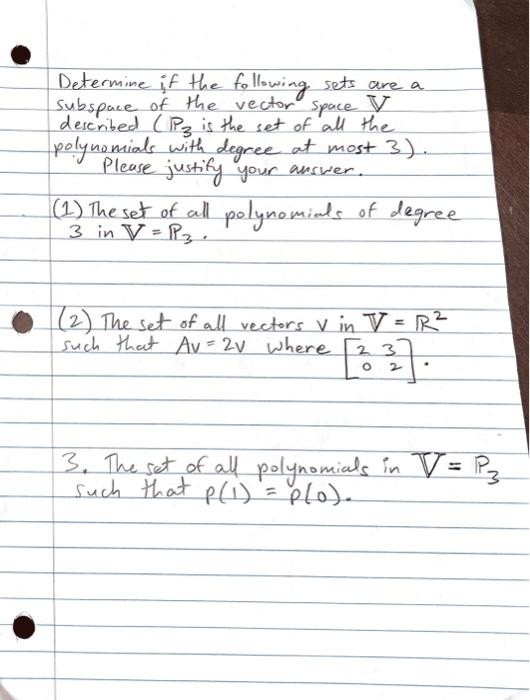 Determine if the following sets are a
subspace of the vector space 𝕍
described (ℙ₃ is the set of all the
polynomials with degree at most 3).
Please justify your answer.
(1) The set of all polynomials of degree
3 in 𝕍 = ℙ₃.
(2) The set of all vectors v in 𝕍 = ℝ²
such that Av = 2v where [2 3
0 2].
3. The set of all polynomials in 𝕍 = ℙ₃
such that p(1) = p(0).